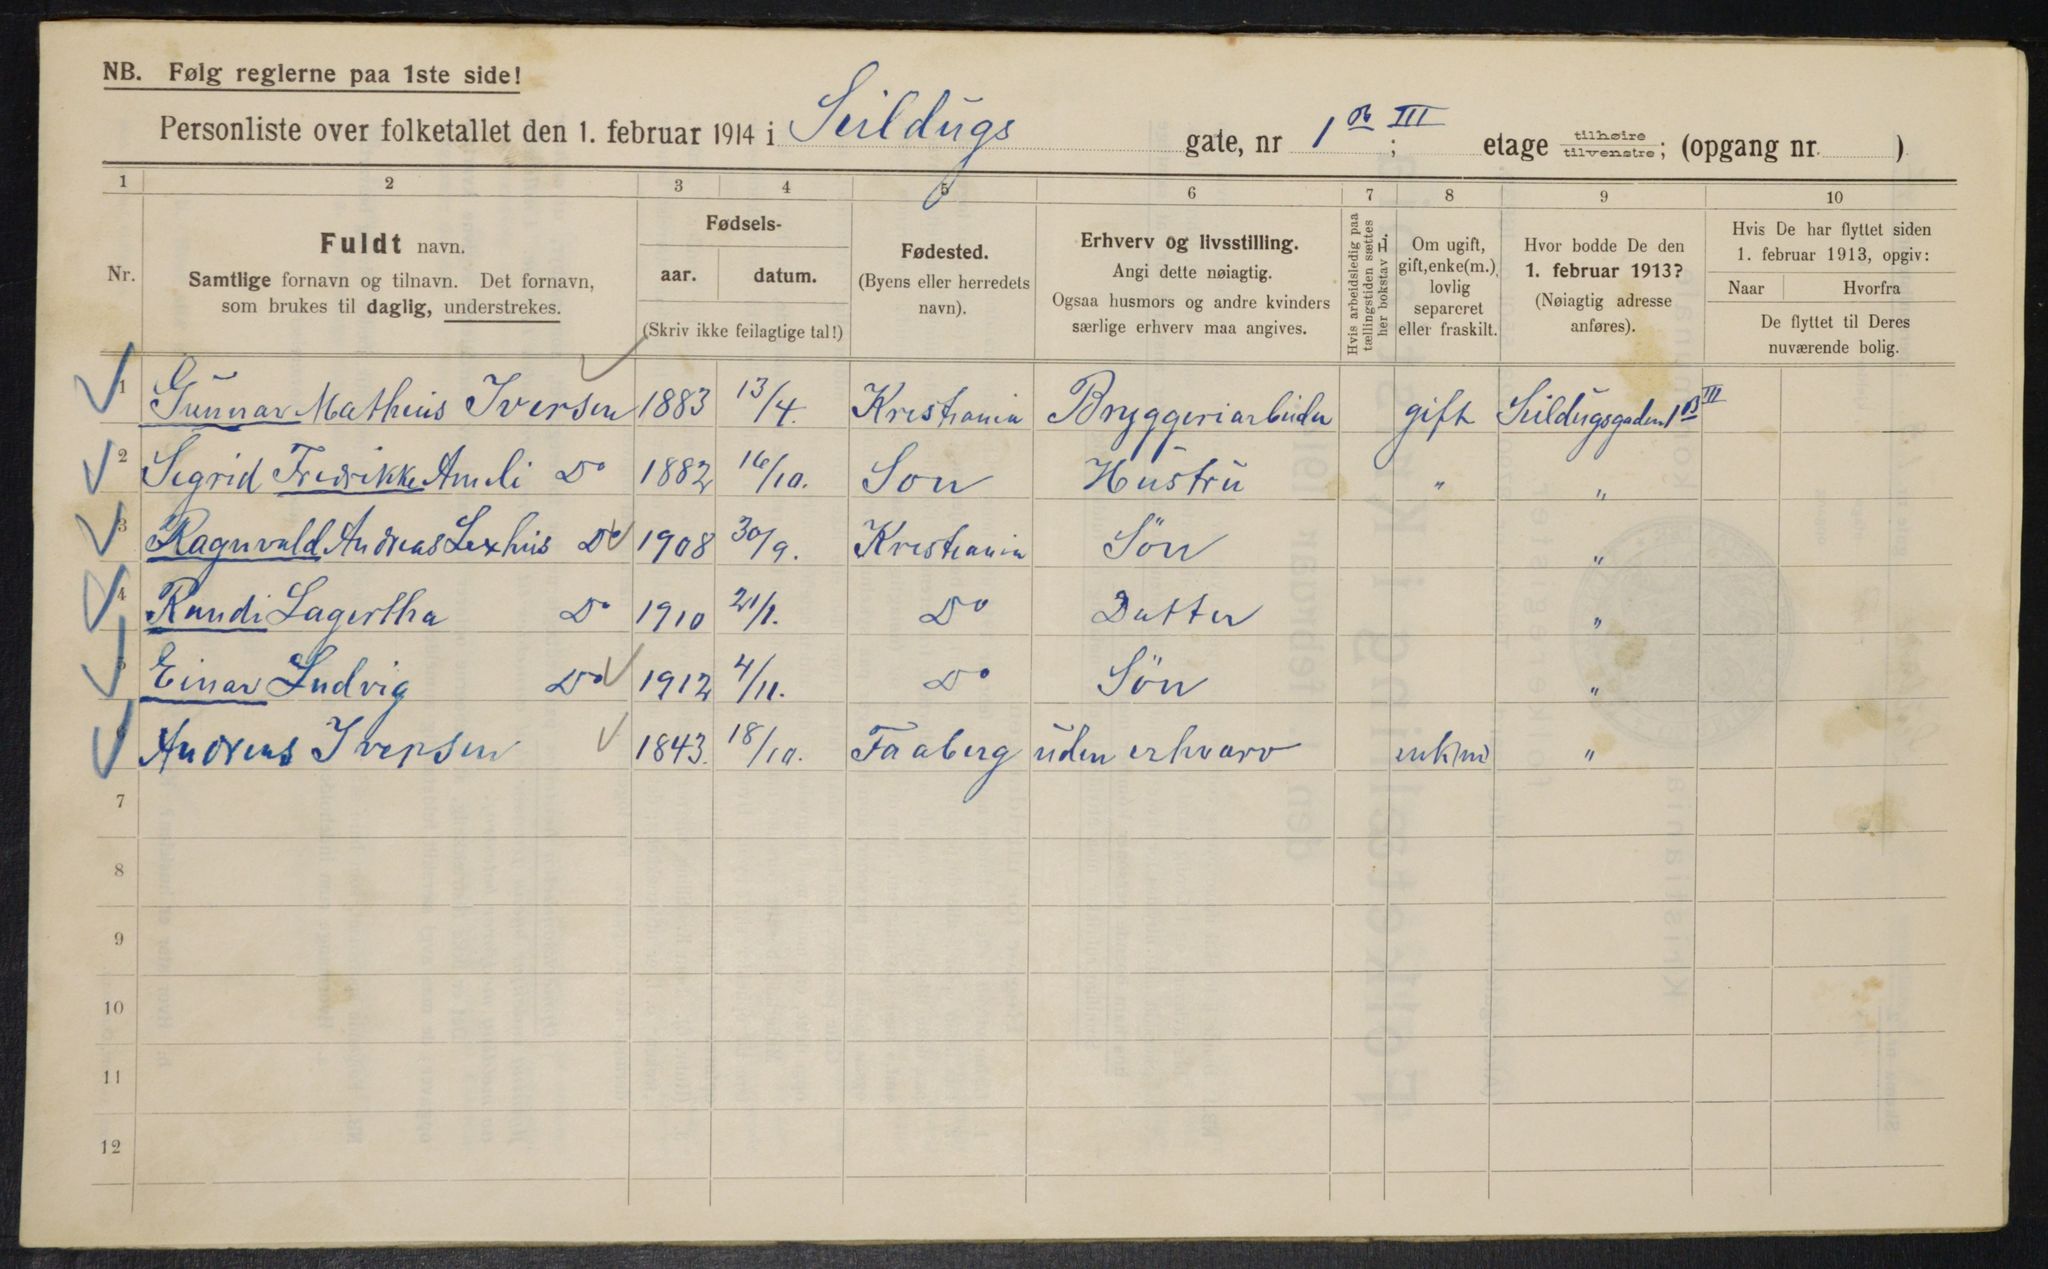 NB. Følg reglerne paa 1ste side!
Personliste over folketallet den 1. februar 1914 i Seildugs gate, nr 1 B III; etage tilhøire/tilvenstre; (opgang nr. )
1 2 3 4 5 6 7 8 9 10
Nr.
Fuldt navn.
Samtlige fornavn og tilnavn. Det fornavn,
som brukes til daglig, understrekes.
Fødsels-
aar. datum.
(Skriv ikke feilagtige tal!)
Fødested.
(Byens eller herredets
navn).
Erhverv og livsstilling.
Angi dette nøiagtig.
Ogsaa husmors og andre kvinders
særlige erhverv maa angives.
Hvis arbeidsledig paa
tællingstiden sættes
her bokstav L.
Om ugift,
gift, enke(m.),
lovlig
separeret
eller fraskilt.
Hvor bodde De den
1. februar 1913?
(Nøiagtig adresse
anføres).
Hvis De har flyttet siden
1. februar 1913, opgiv:
Naar Hvorfra
De flyttet til Deres
nuværende bolig.
1 Gunnar Matheus Iversen 1883 13/4. Kristiania Bryggeriarbeider gift Seildugsgaden 1 B III
2 Sigrid Fredrikke Ameli Do 1882 16/10. Son Hustru " "
3 Ragnvald Andreas Lexhus Do 1908 30/9. Kristiania Søn "
4 Randi Lagertha Do 1910 21/1. Do Datter "
5 Einar Ludvig Do 1912 4/11. Do Søn "
6 Andreas Iversen 1843. 18/10. Faaberg uden erhværv enk(m) "
7
8
9
10
11
12